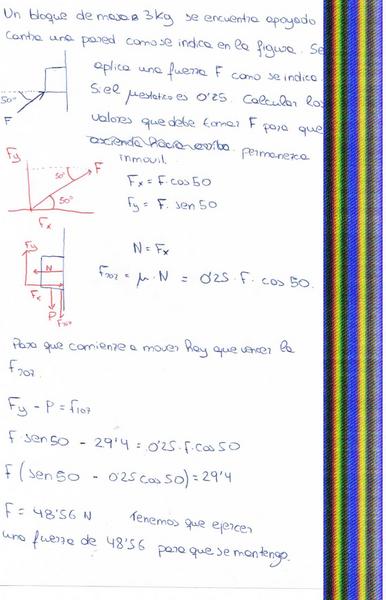 Un bloque de masa 3kg se encuentra apoyado
contra una pared como se indica en la figura. Se
aplica una fuerza F como se indica.
Si el μestatico es 0'25. Calcular los
valores que debe tomar F para que
permanezca
inmovil.
50°
F
Fy
50°
F
50°
Fx
Fx = F. cos 50
Fy = F. sen 50
Fy
N
Fx
P
Froz
N = Fx
Froz = μ. N = 0'25. F. cos 50.
Para que comience a mover hay que vencer la
Froz.
Fy - P = froz
F. sen 50 - 29'4 = 0'25. F. cos 50
F (sen 50 - 0'25 cos 50) = 29'4
F = 48'56 N Tenemos que ejercer
una fuerza de 48'56 para que se mantenga.